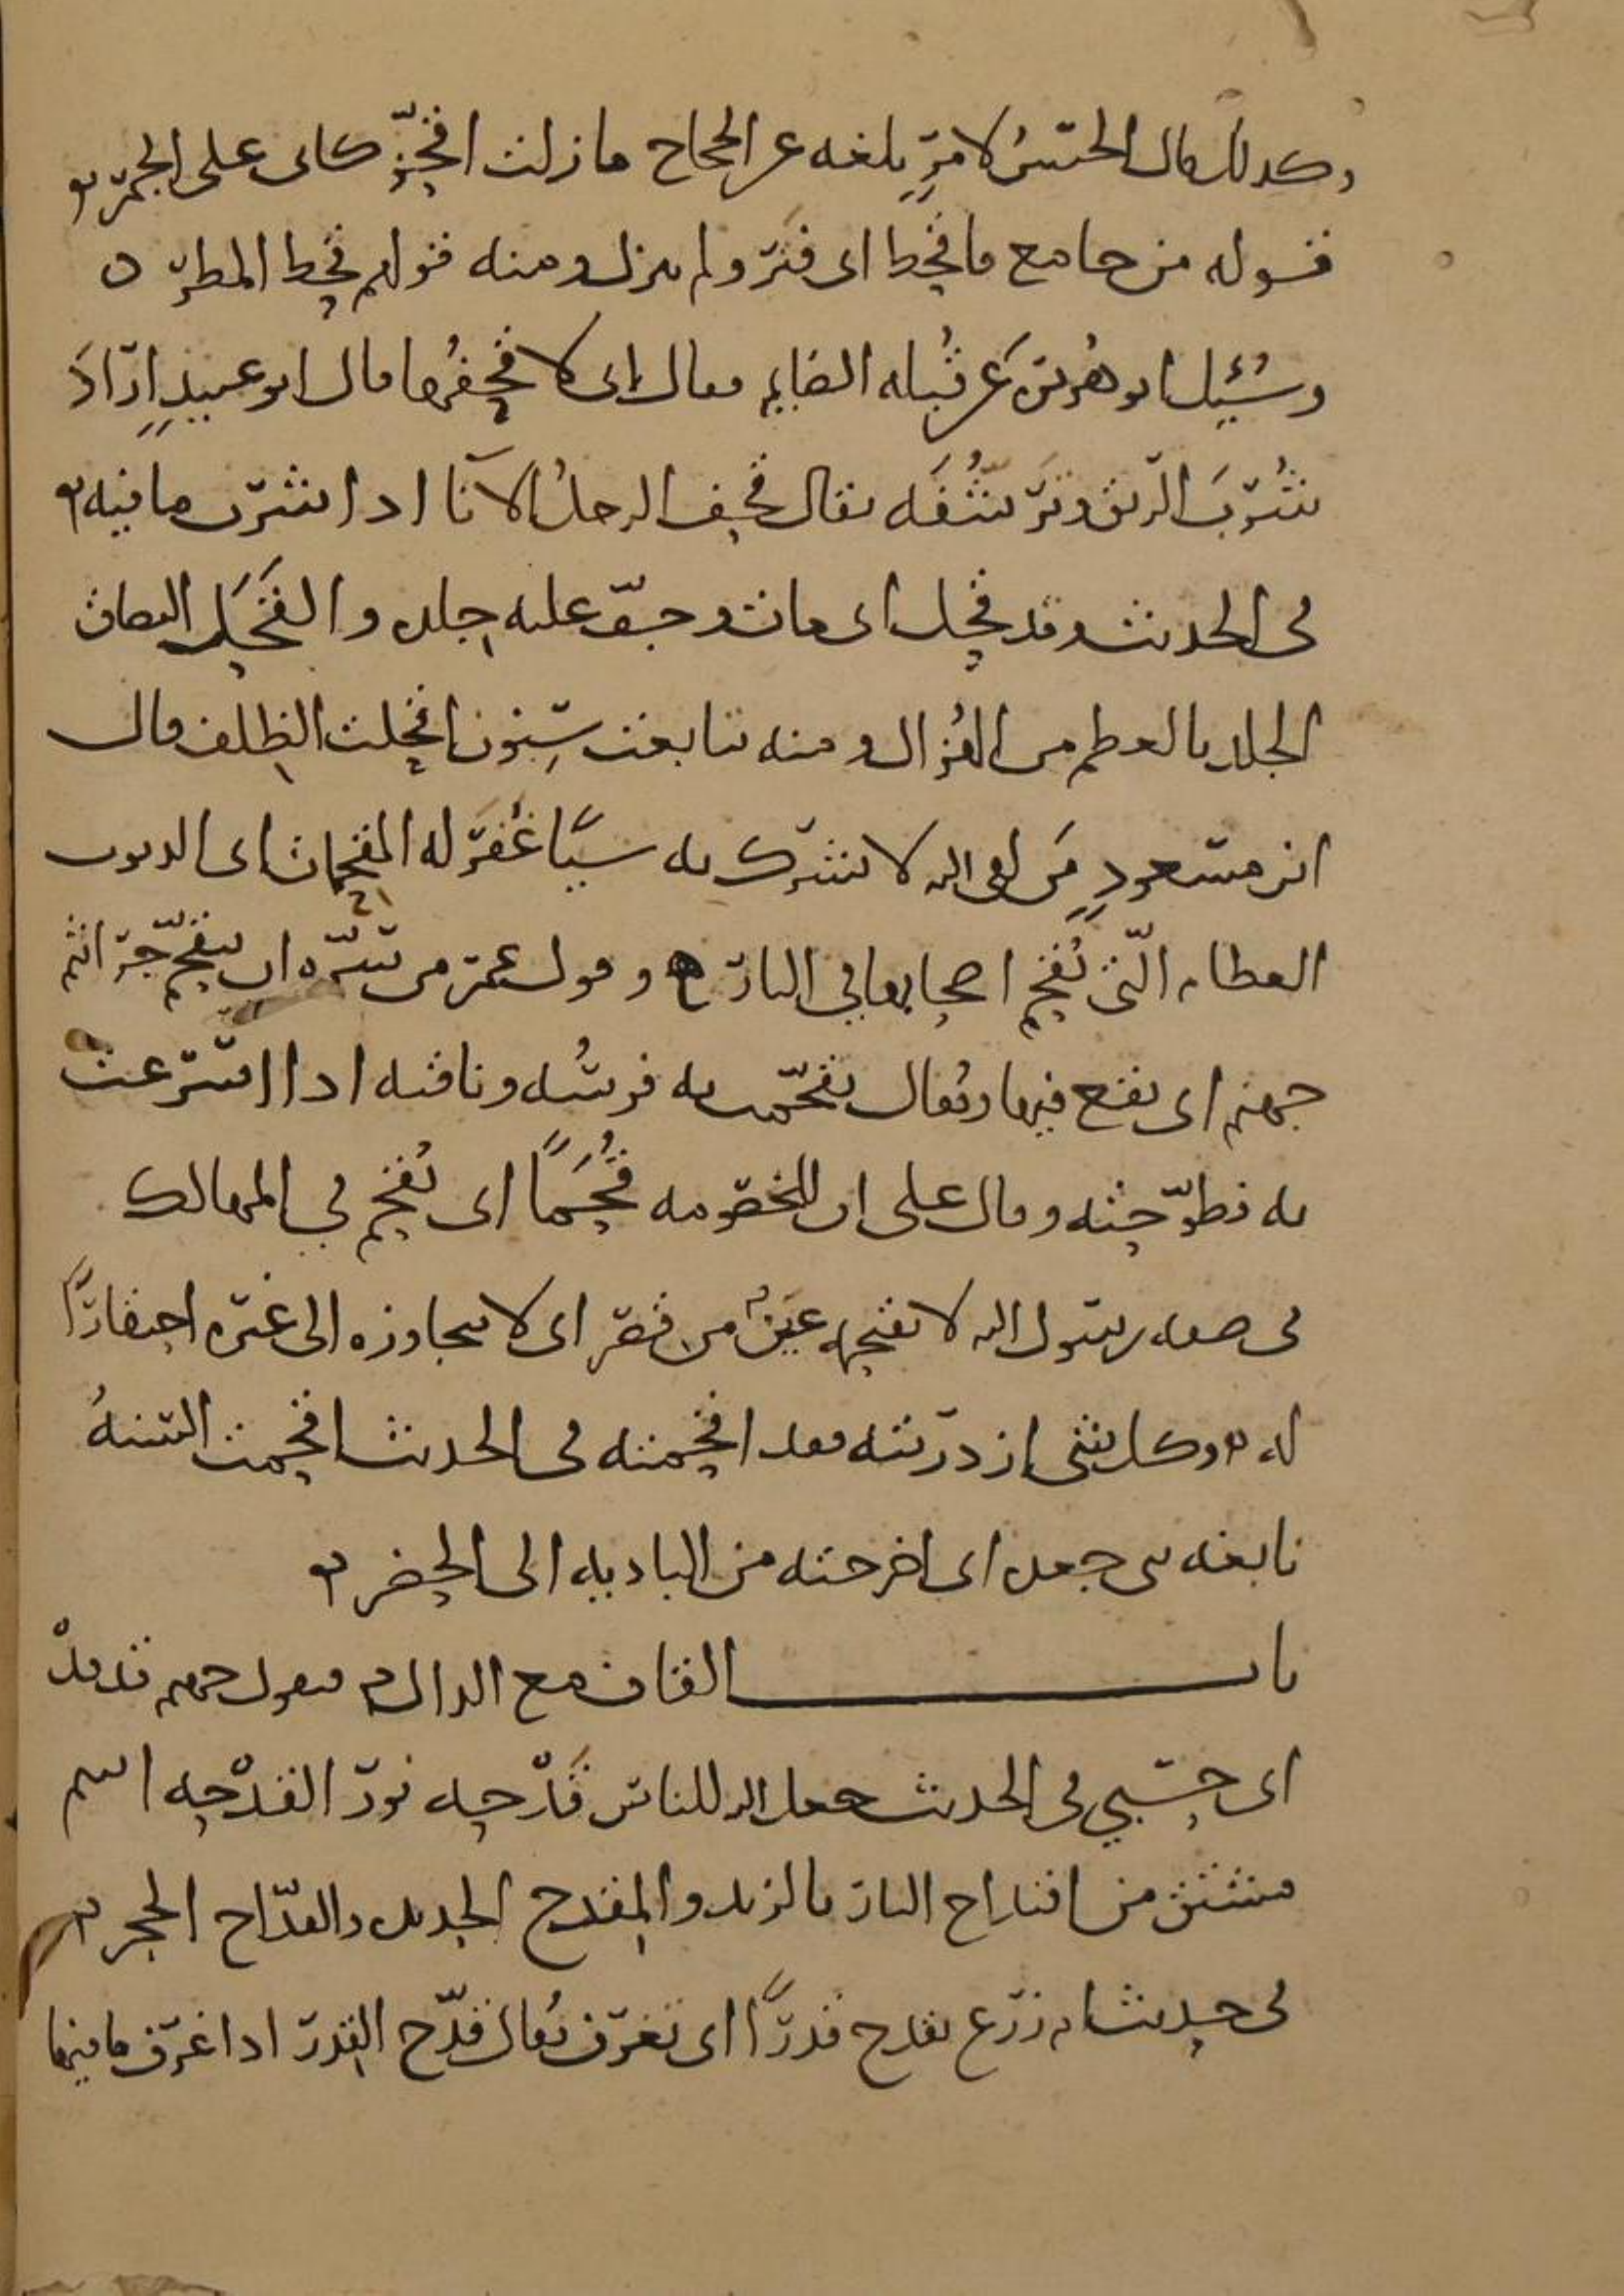 وكذلك قال الحسن لامر بلغه عن الحجاج ما زلت اقحز كاني على الجمر
قوله من جامع فاقحط اى فتر ولم ينزل ومنه قولهم قحط المطر ه
وسئل ابو هريرة عن قبلة الصايم فقال انى لاقحفها قال ابو عبيد اراد
شرب الريق وترشفه يقال قحف الرجل الانا اذا شرب ما فيه
فى الحديث وقد قحل اى مات وجف عليه جلده والقحل التصاق
الجلد بالعظم من الهزال ومنه تتابعت سنون اقحلت الظلف قال
ابن مسعود من لقى الله لا يشرك به شيا غفر له المقحمات اى الذنوب
العظام التى تقحم اصحابها فى النار وقول عمر من سره ان يتقحم جراثيم
جهنم اى يقع فيها ويقال تقحمت به فرسه وناقته اذا اسرعت
به فطوحته وقال على ان للخصومه قحما اى تقحم فى المهالك
فى صفه رسول الله لا تقتحمه عين من قصر اى لا تتجاوزه الى غيره احتقارا
له وكل شى ازدريته فقد اقتحمته فى الحديث اقحمت السنة
نابغه بنى جعده اى اخرجته من الباديه الى الحضر
باب القاف مع الدال فتقول جهنم قد قد
اى حسبي فى الحديث جعل الله للناس قدحه نور القدحه اسم
مشتق من اقتداح النار بالزند والمقدح الحديد والقداح الحجر
فى حديث ام زرع تقدح قدرا اى تغرف يقال قدح القدر اذا غرف ما فيها